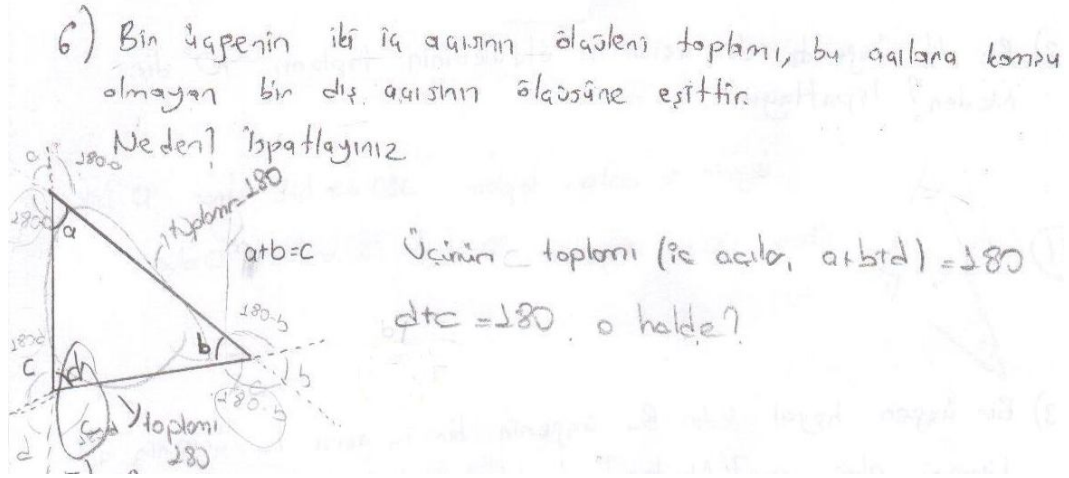 6) Bir üçgenin iki iç açısının ölçüleri toplamı, bu açılara komşu
olmayan bir dış açısının ölçüsüne eşittir.
Neden? İspatlayınız
a
180-a
180-a
a
toplamı=180
a+b=c
Üçünün toplamı (iç açılar, a+b+d) = 180
d+c = 180. o halde?
180-b
180-d
b
c
d
b
180-b
toplamı
180
d